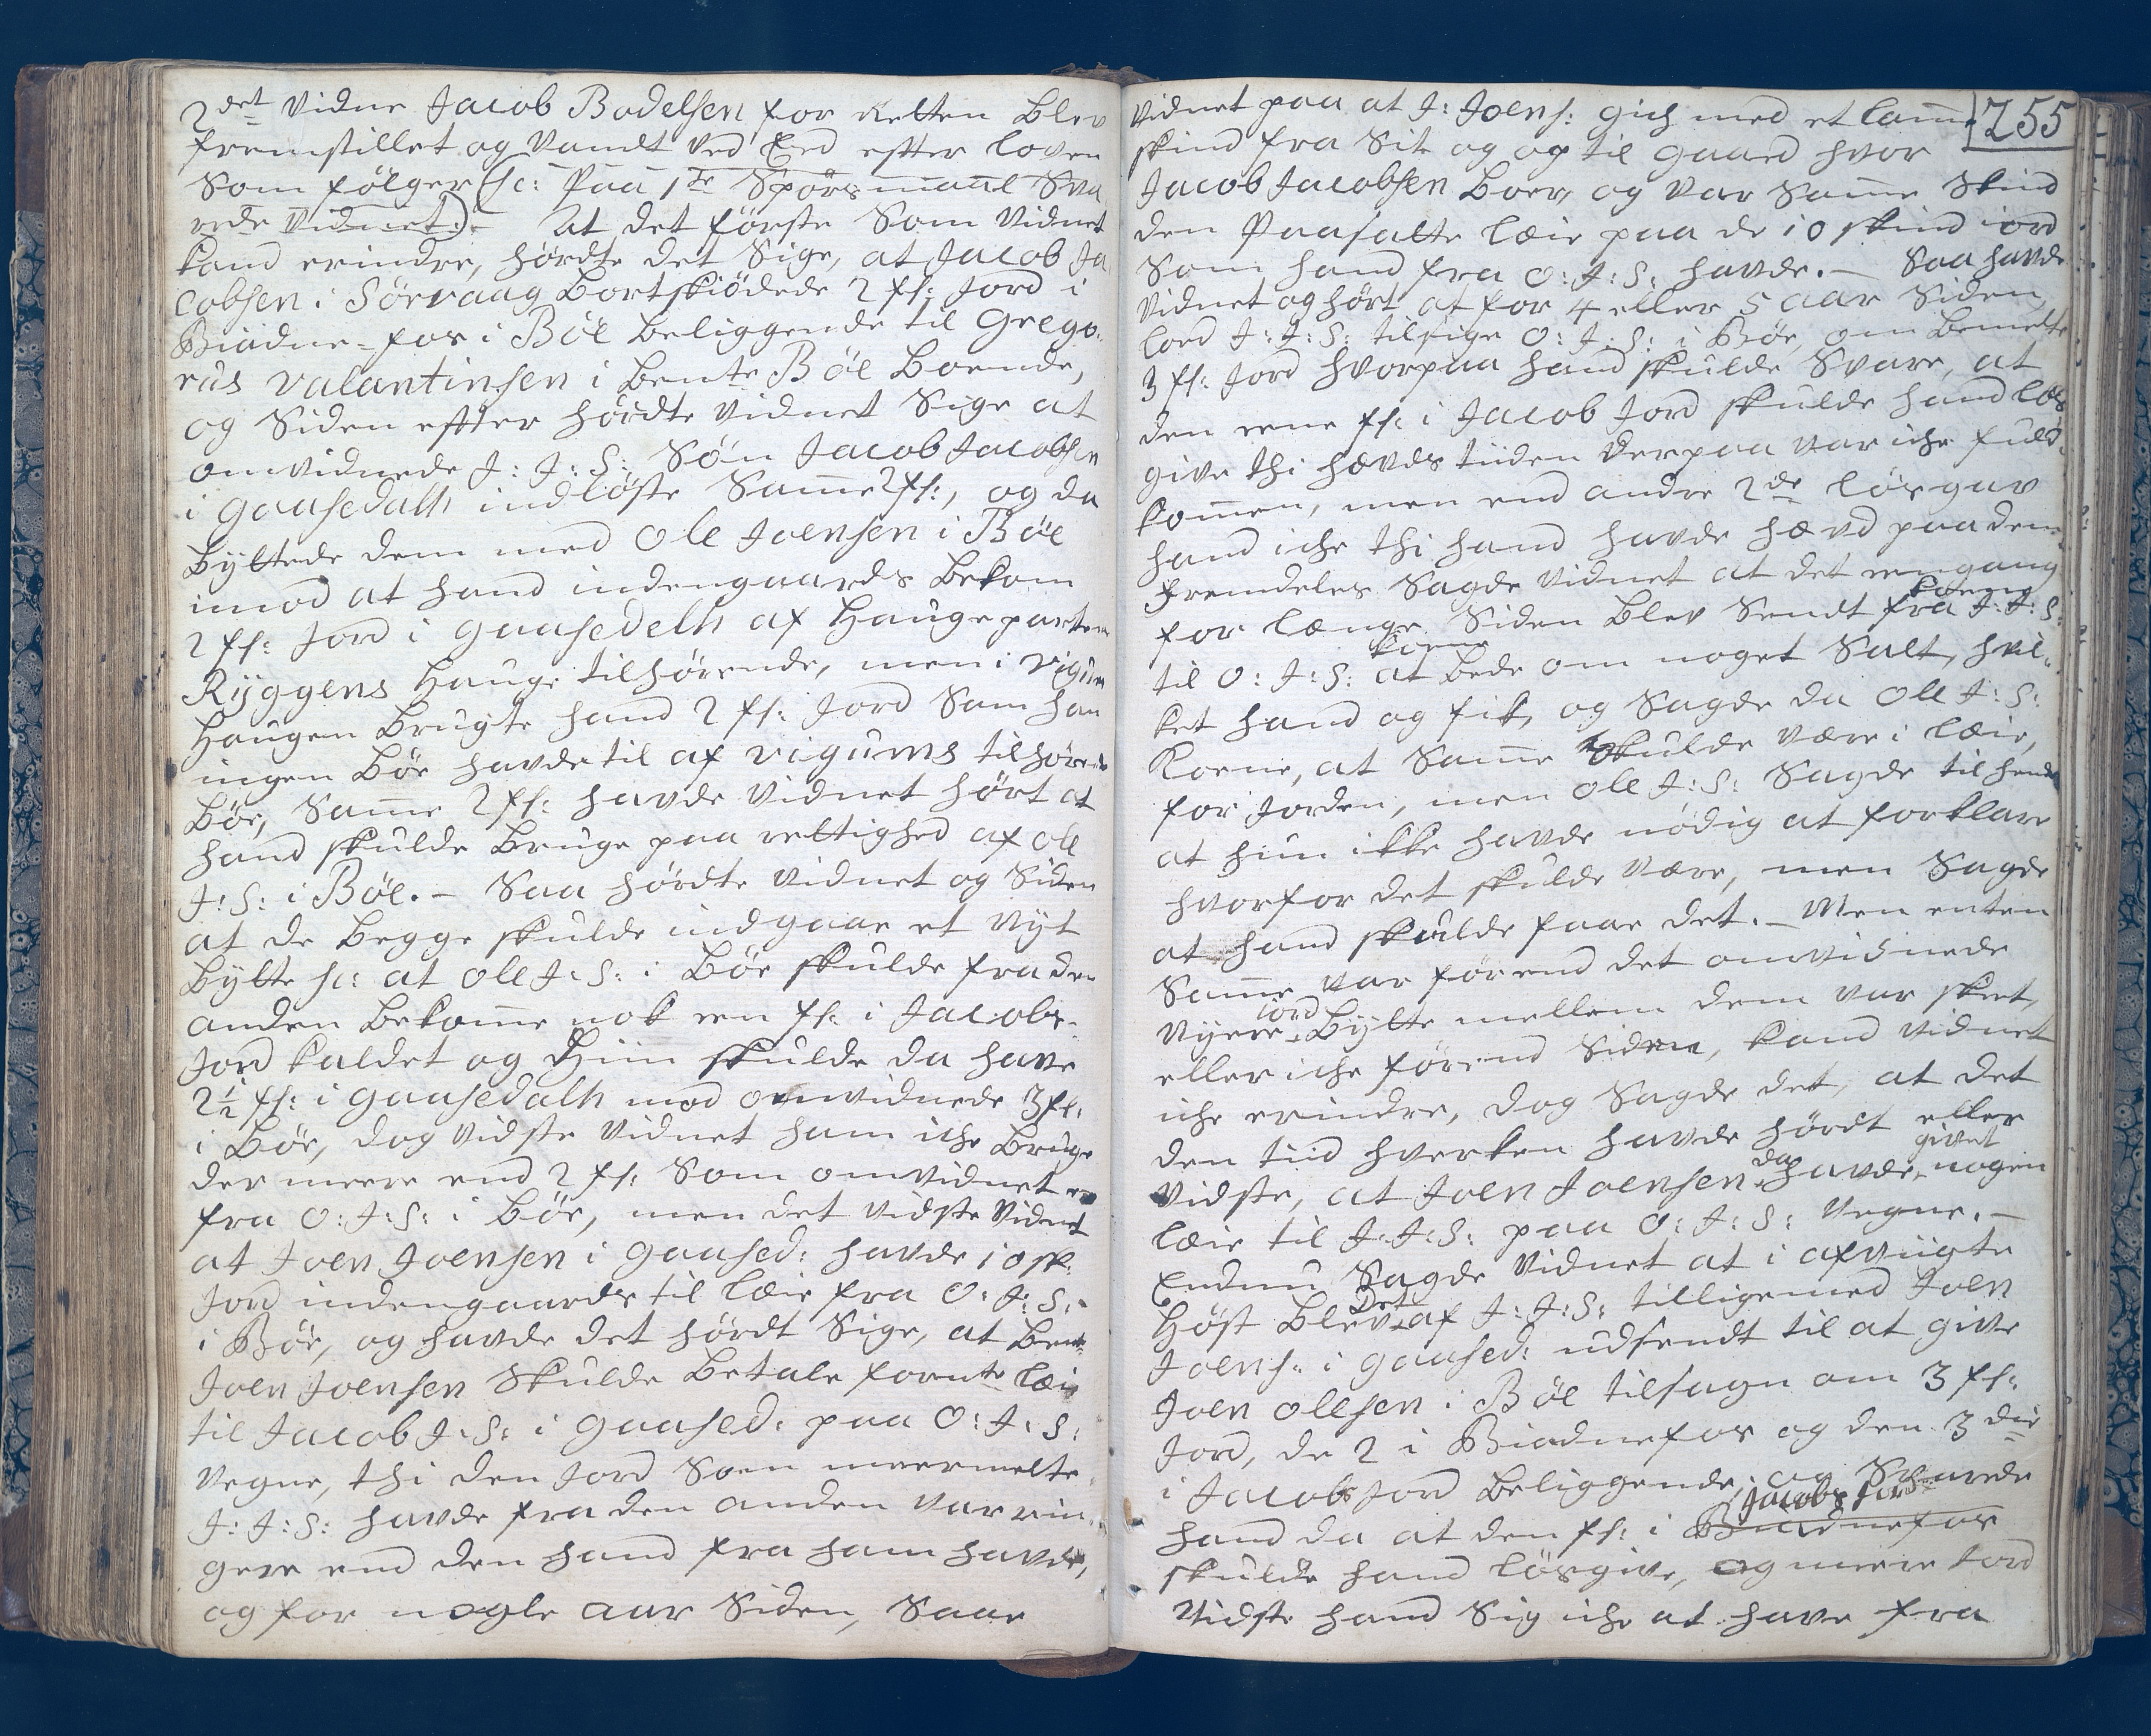 2det Vidne Jacob Bodelsen for Retten Blev
fremstillet og Vandt ved Eed efter loven
Som følger (sc: Paa 1te Spørsmaal Sva
rede Vidnet:)- At det første Som Vidnet
kand erindre, hørdte det Sige, at Jacob Ja
cobsen i Sørvaag Bortskiødede 2 fs: Jord i
Biadne-fos i Böe beliggende til Grego-
rus Valantinsen i bente Böe Boende,
og Siden efter hørdte Vidnet Sige at
omvidnede J: J: S: Søn Jacob Jacobsen
i Gaasedalh indløste Samme 2 fs:, og da
byttede dem med Ole Joensen i Böe
imod at hand indengaards bekom
2 fs: Jord i Gaasedelh af Haugeparten
Ryggens Hauge tilhørende, men i Vigum
Haugen Brugte hand 2 fs: Jord Som han
ingen Bör havde til af Vigums tilhørende
Bör, Samme 2 fs: havde Vidnet hørt at
hand skulde Bruge paa rettighed af Ole
J: S: i Böe. - Saa hørdte Vidnet og Siden
at de begge skulde indgaae et Nyt
bytte sc: at Ole J: S: i Böe skulde fra den
anden bekomme nok een fs: i Jacobs-
Jord kaldet og Hiin skulde da have
2½ fs: i Gaasedalh mod omvidnede 3 fs:
i Böe, dog Vidste Vidnet ham iche Bruge
der meere end 2 fs: Som omvidnet er
fra O: J: S: i Böe, men det Vidste Vidnet
at Joen Joensen i Gaased: havde 10 sk:
Jord indengaards til Leie fra O: J: S:
i Böe, og havde det hørdt Sige, at bemte
Joen Joensen Skulde betale fornte Leie
til Jacob J: S: i Gaased: paa O: J: S:
Vegne, thi den Jord Som meermelte
J: J: S: havde fra den anden Var rin-
gere end den hand fra ham havde,
og for nogle aar Siden, Saae
255
Vidnet paa at J: Joens: gich med et lamm
skind fra Sit og op til Gaard hvor
Jacob Jacobsen Boer, og Var Samme Skind
den Paasatte Leie paa de 10 skind jord
Som hand fra O: J: S: havde. - Saa havde
Vidnet og hørt at for 4 eller 5 aar Siden,
lod J: J: S: tilsige O: J: S: i Böe, om bemelte
3 fs: Jord hvorpaa hand skulde Svare, at
den eene fs: i Jacob Jord skulde hand løs
give thi hævds tiiden derpaa var iche fuld-
kommen, men end andre 2de løsgav
hand iche thi hand havde hævd paa dem
Fremdeles Sagde Vidnet at det eengang
for længe Siden Blev Sendt fra J: J: S:
Koene
til O: J: S: Koene at bede om noget Salt, hvil-
ket hand og fik, og Sagde da Ole J: S:
Koene, at Samme skulde være i Leie,
for Jorden, men Ole J: S: Sagde til hende
at hun ikke havde nødig at forklare
hvorfor det skulde være, men Sagde
at hand skulde faae det. - Men enten
Samme var førend det omvidnede
Nyere Jord Bytte mellem dem var skeet,
eller iche førend Siden, kand Vidnet
iche erindre, dog Sagde det, at det
den tiid hverken havde hørdt eller
Vidste, at Joen Joensen da havde givet nogen
Leie til J: J: S: paa O: J: S: Vegne. -
Endnu Sagde Vidnet at i afvigte
Høst Blev Det af J: J: S: tilligemed Joen
Joens: i Gaased: udsendt til at give
Joen Olesen i Böe tilsagn om 3 fs:
Jord, de 2 i Biadnefos og den 3die
i Jacobs Jord beliggende, og Svarede
hand da at den fs: i Biadnefos Jacobs Jord
skulde hand løsgive, og meere Jord
Vidste hand Sig iche at have fra